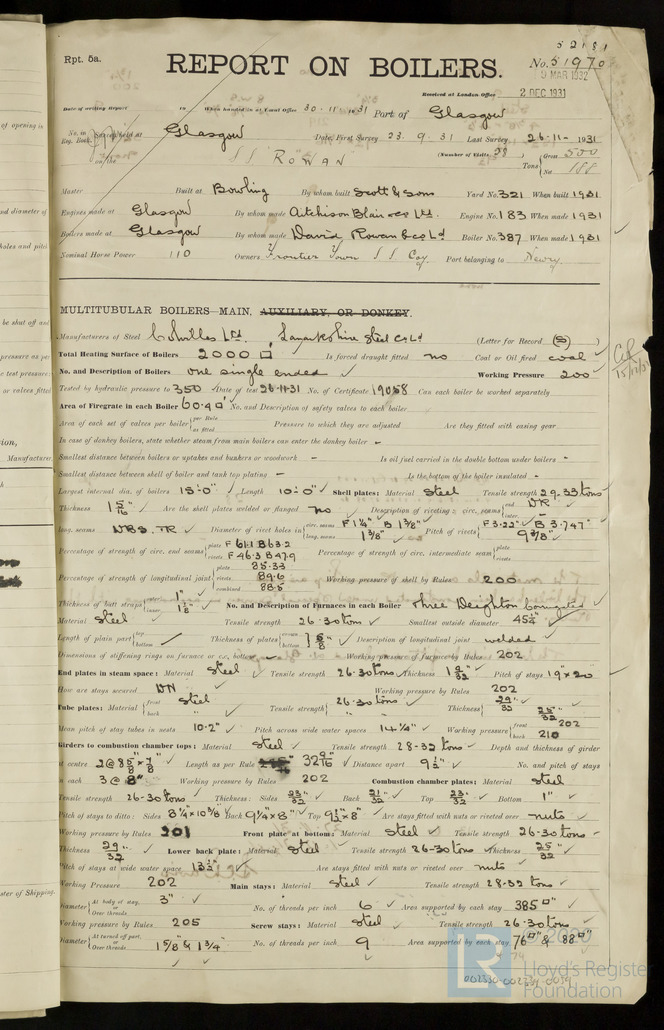 52181
Rpt. 5a.
REPORT ON BOILERS.
No. 51970
9 MAR 1932
Received at London Office 2 DEC 1931
Date of writing Report 19 When handed in at Local Office 30-11-1931 Port of Glasgow
No. in Reg. Book. Survey held at Glasgow Date, First Survey 23.9.31 Last Survey 26-11-1931
on the SS "ROWAN" (Number of Visits 38) Tons Gross 500 Net 188
Master Built at Bowling By whom built Scott & Sons Yard No. 321 When built 1931
Engines made at Glasgow By whom made Aitchison Blair & Co Ltd. Engine No. 183 When made 1931
Boilers made at Glasgow By whom made David Rowan & Co Ld Boiler No. 387 When made 1931
Nominal Horse Power 110 Owners Frontier Town SS Coy. Port belonging to Newry
MULTITUBULAR BOILERS MAIN, AUXILIARY, OR DONKEY.
Manufacturers of Steel Colvilles Ltd, Lanarkshire Steel Co Ld (Letter for Record (S))
Total Heating Surface of Boilers 2000 □ Is forced draught fitted no Coal or Oil fired coal
No. and Description of Boilers one single ended Working Pressure 200
Tested by hydraulic pressure to 350 Date of test 26.11.31 No. of Certificate 19058 Can each boiler be worked separately
Area of Firegrate in each Boiler 60.40 No. and Description of safety valves to each boiler
Area of each set of valves per boiler { per Rule as fitted Pressure to which they are adjusted Are they fitted with easing gear
In case of donkey boilers, state whether steam from main boilers can enter the donkey boiler -
Smallest distance between boilers or uptakes and bunkers or woodwork - Is oil fuel carried in the double bottom under boilers -
Smallest distance between shell of boiler and tank top plating - Is the bottom of the boiler insulated -
Largest internal dia. of boilers 15'-0" Length 10'-0" Shell plates: Material Steel Tensile strength 29-33 tons
Thickness 1 5/16 Are the shell plates welded or flanged no Description of riveting: circ. seams { end DR inter. -
long. seams DBS. TR Diameter of rivet holes in { circ. seams F 1 1/4" B 1 3/8" long. seams 1 3/8" Pitch of rivets { F 3.22" B 3.747" 9 3/8"
Percentage of strength of circ. end seams { plate F 61.1 B 63.2 rivets F 46.3 B 47.9 Percentage of strength of circ. intermediate seam { plate rivets
Percentage of strength of longitudinal joint { plate 85.33 rivets 89.6 combined 88.5 Working pressure of shell by Rules 200
Thickness of butt straps { outer 1" inner 1 1/8" No. and Description of Furnaces in each Boiler Three Deighton Corrugated
Material Steel Tensile strength 26-30 tons Smallest outside diameter 45 1/4"
Length of plain part { top bottom Thickness of plates { crown bottom } 5/8" Description of longitudinal joint welded
Dimensions of stiffening rings on furnace or c.c. bottom Working pressure of furnace by Rules 202
End plates in steam space: Material Steel Tensile strength 26-30 tons Thickness 1 3/32 Pitch of stays 19" x 20
How are stays secured DN Working pressure by Rules 202
Tube plates: Material { front back Steel Tensile strength { 26-30 tons " " Thickness { 29/32 25/32
Mean pitch of stay tubes in nests 10.2" Pitch across wide water spaces 14 1/4" Working pressure { front 202 back 210
Girders to combustion chamber tops: Material Steel Tensile strength 28-32 tons Depth and thickness of girder
at centre 2@ 8 5/8" x 7/8 Length as per Rule 32 9/16" Distance apart 9 1/2" No. and pitch of stays
in each 3@ 8" Working pressure by Rules 202 Combustion chamber plates: Material Steel
Tensile strength 26-30 tons Thickness: Sides 23/32 Back 21/32 Top 23/32 Bottom 1"
Pitch of stays to ditto: Sides 8 1/4" x 10 3/8 Back 9 1/4" x 8" Top 9 1/2" x 8" Are stays fitted with nuts or riveted over nuts
Working pressure by Rules 201 Front plate at bottom: Material Steel Tensile strength 26-30 tons
Thickness 29/32 Lower back plate: Material Steel Tensile strength 26-30 tons Thickness 25/32
Pitch of stays at wide water space 13 1/2" Are stays fitted with nuts or riveted over nuts
Working Pressure 202 Main stays: Material Steel Tensile strength 28-32 tons
Diameter { At body of stay, or Over threads 3" No. of threads per inch 6 Area supported by each stay 385 □"
Working pressure by Rules 205 Screw stays: Material Steel Tensile strength 26-30 tons
Diameter { At turned off part, or Over threads 1 5/8 & 1 3/4" No. of threads per inch 9 Area supported by each stay 76 □" & 88 □"
© 2020
LR Lloyd's Register Foundation
002330-002334-0059